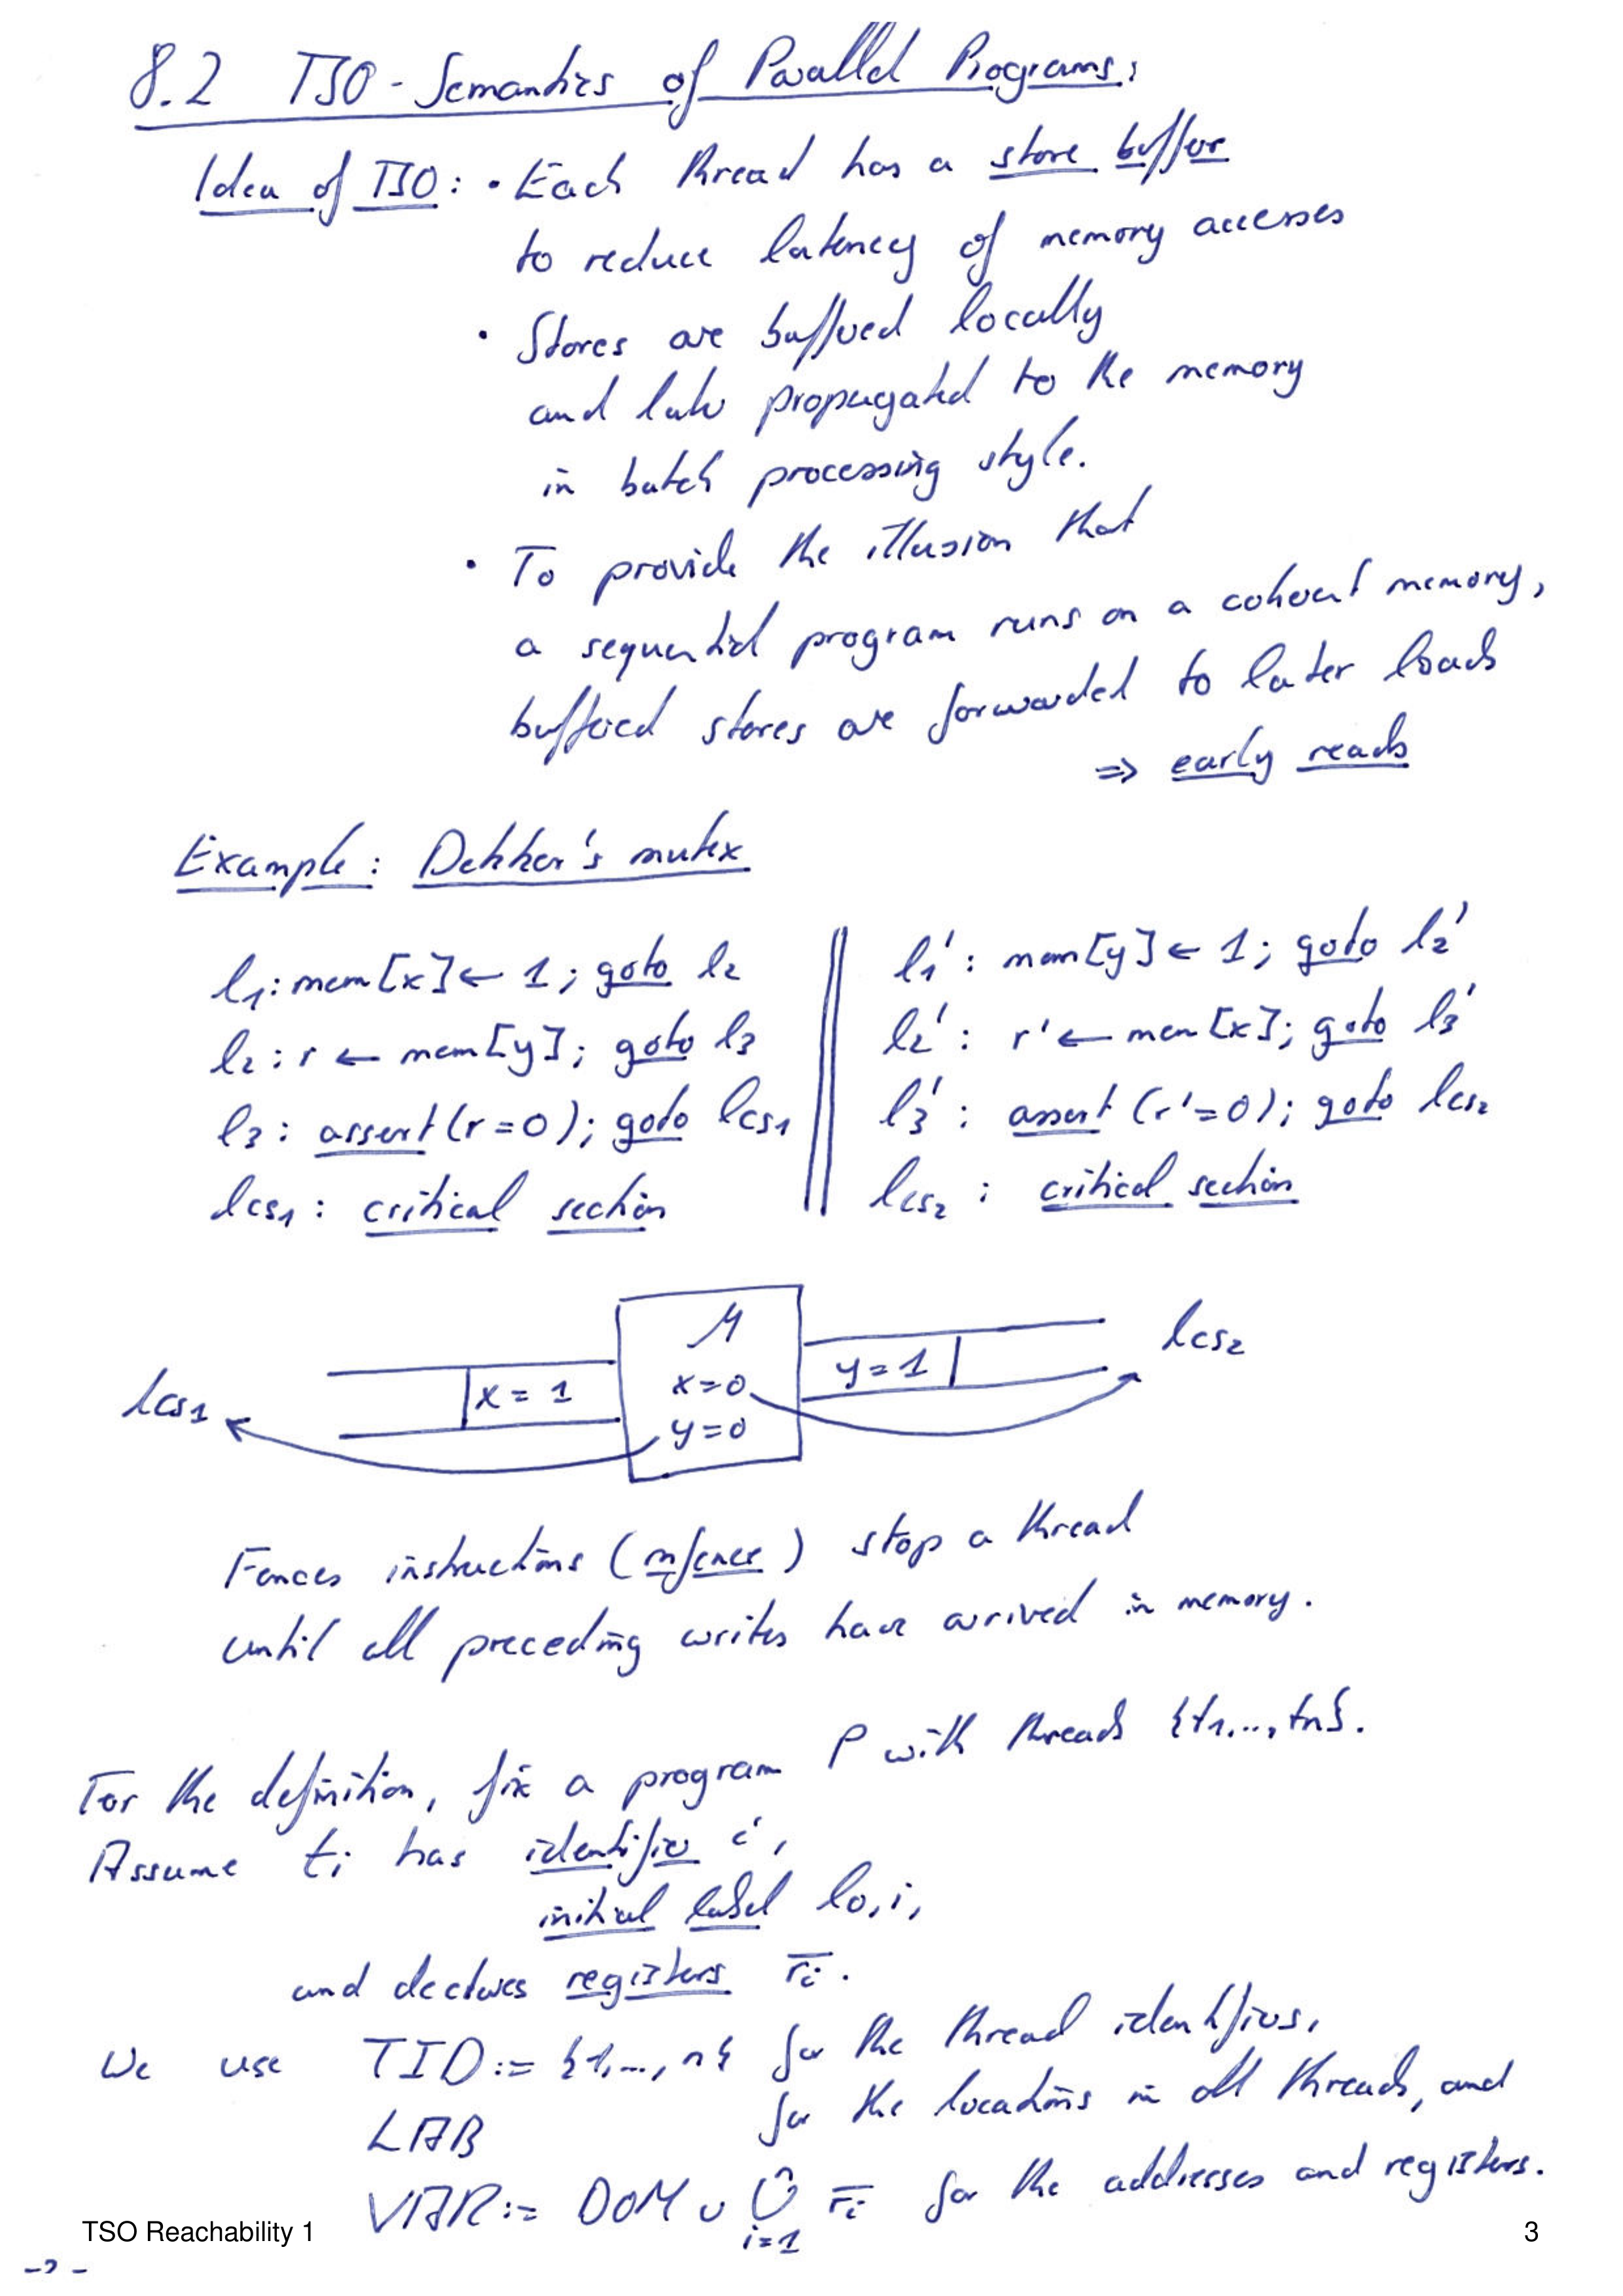 8.2 TSO-Semantics of Parallel Programs:
Idea of TSO: • Each thread has a store buffer
to reduce latency of memory accesses
• Stores are buffered locally
and later propagated to the memory
in batch processing style.
• To provide the illusion that
a sequential program runs on a coherent memory,
buffered stores are forwarded to later loads
⇒ early reads
Example: Dekker's mutex
l1: mem[x] ← 1; goto l2 || l1': mem[y] ← 1; goto l2'
l2: r ← mem[y]; goto l3 || l2': r' ← mem[x]; goto l3'
l3: assert(r=0); goto lcs1 || l3': assert(r'=0); goto lcs2
lcs1: critical section || lcs2: critical section
M
lcs2
lcs1 x = 1 x=0 y=1
y=0
Fences instructions (mfence) stop a thread
until all preceding writes have arrived in memory.
For the definition, fix a program P with threads {t1,...,tn}.
Assume ti has identifier i,
initial label l0,i,
and declares registers r̄i.
We use TID := {1,...,n} for the thread identifiers,
LAB for the locations in all threads, and
VAR := DOM ∪ ⋃ r̄i for the addresses and registers.
n
i=1
TSO Reachability 1 3
-2-